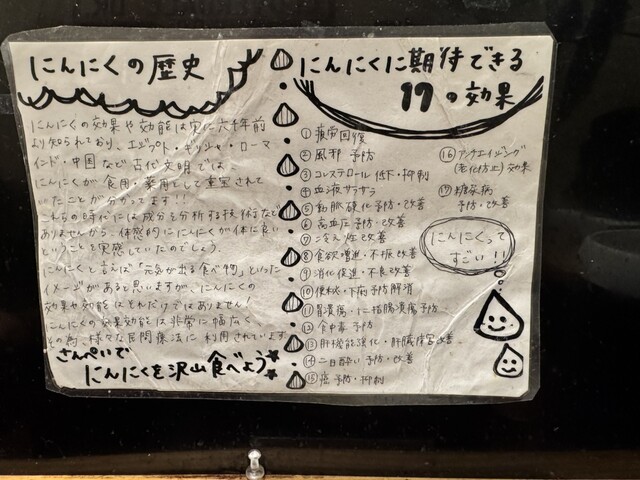 にんにくの歴史
にんにくの効果や効能は実に六千年前
より知られており、エジプト・ギリシャ・ローマ
インド・中国など古代文明では
にんにくが食用・薬用として重宝されて
いたことが分かってます!!
これらの時代には成分を分析する技術など
ありませんから、体感的ににんにくが体に良い
ということを実感していたのでしょう。
にんにくと言えば「元気が出る食べ物」といった
イメージがあると思いますが、にんにくの
効果や効能はそれだけではありません!
にんにくの効果効能は非常に幅広く、
その為、様々な民間療法に利用されています
さんぺいで
にんにくを沢山食べよう
にんにくに期待できる
17の効果
①疲労回復
②風邪予防
③コレステロール低下・抑制
④血液サラサラ
⑤動脈硬化予防・改善
⑥高血圧予防・改善
⑦冷え性改善
⑧食欲増進・不振改善
⑨消化促進・不良改善
⑩便秘・下痢予防解消
⑪胃潰瘍・十二指腸潰瘍予防
⑫食中毒予防
⑬肝機能強化・肝臓障害改善
⑭二日酔い予防・改善
⑮癌予防・抑制
⑯アンチエイジング
(老化防止)効果
⑰糖尿病
予防・改善
にんにくって
すごい!!